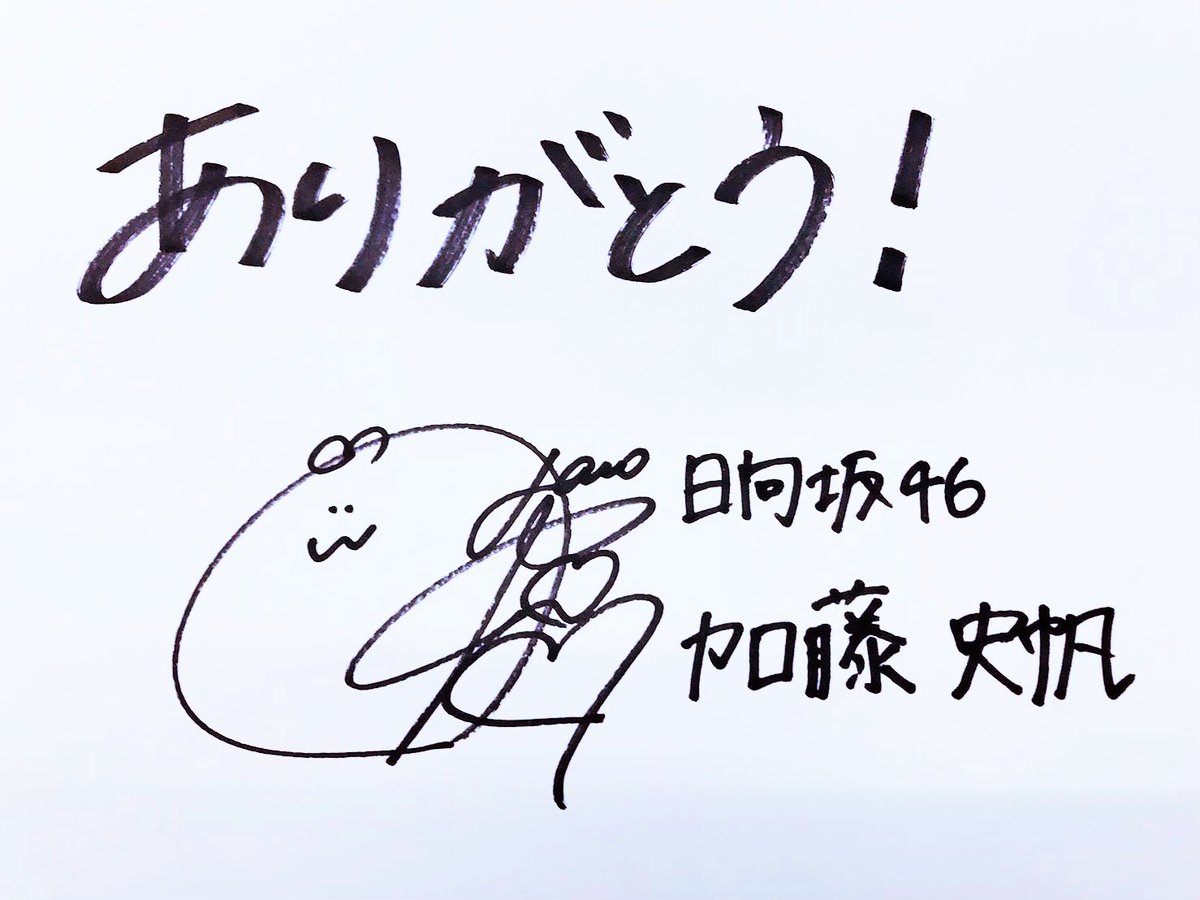 ありがとう!
日向坂46
加藤 史帆